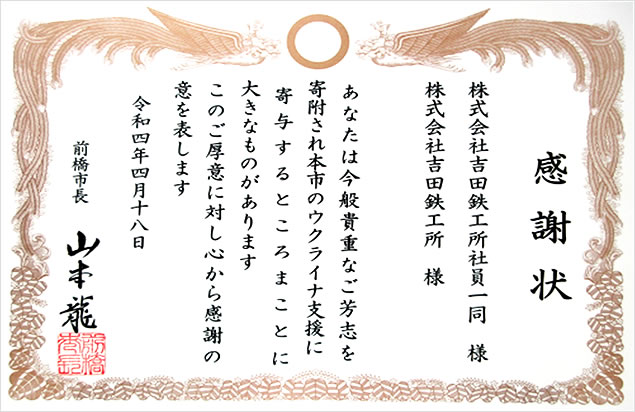 感謝状
株式会社吉田鉄工所社員一同 様
株式会社吉田鉄工所 様
あなたは今般貴重なご芳志を
寄附され本市のウクライナ支援に
寄与するところまことに
大きなものがあります
このご厚意に対し心から感謝の
意を表します
令和四年四月十八日
前橋市長
山本龍